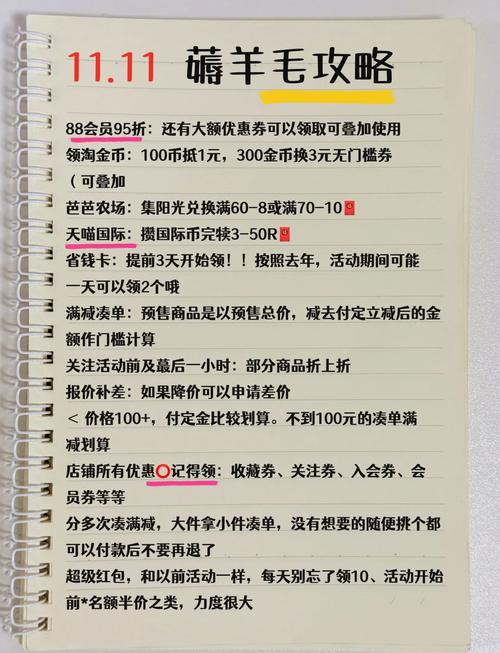 11.11 薅羊毛攻略
88会员95折：还有大额优惠券可以领取可叠加使用
领淘金币：100币抵1元，300金币换3元无门槛券
（可叠加
芭芭农场：集阳光兑换满60-8或满70-10🧧
天喵国际：攒国际币完犊3-50R🧧
省钱卡：提前3天开始领！！按照去年，活动期间可能
一天可以领2个哦
满减凑单：预售商品是以预售总价，减去付定立减后的金
额作门槛计算
关注活动前及蕞后一小时：部分商品折上折
报价补差：如果降价可以申请差价
< 价格100+，付定金比较划算。不到100元的凑单满
减划算
店铺所有优惠⭕记得领：收藏券、关注券、入会券、会
员券等等
分多次凑满减，大件拿小件凑单，没有想要的随便挑个都
可以付款后不要再退了
超级红包，和以前活动一样，每天别忘了领10、活动开始
前*名额半价之类，力度很大